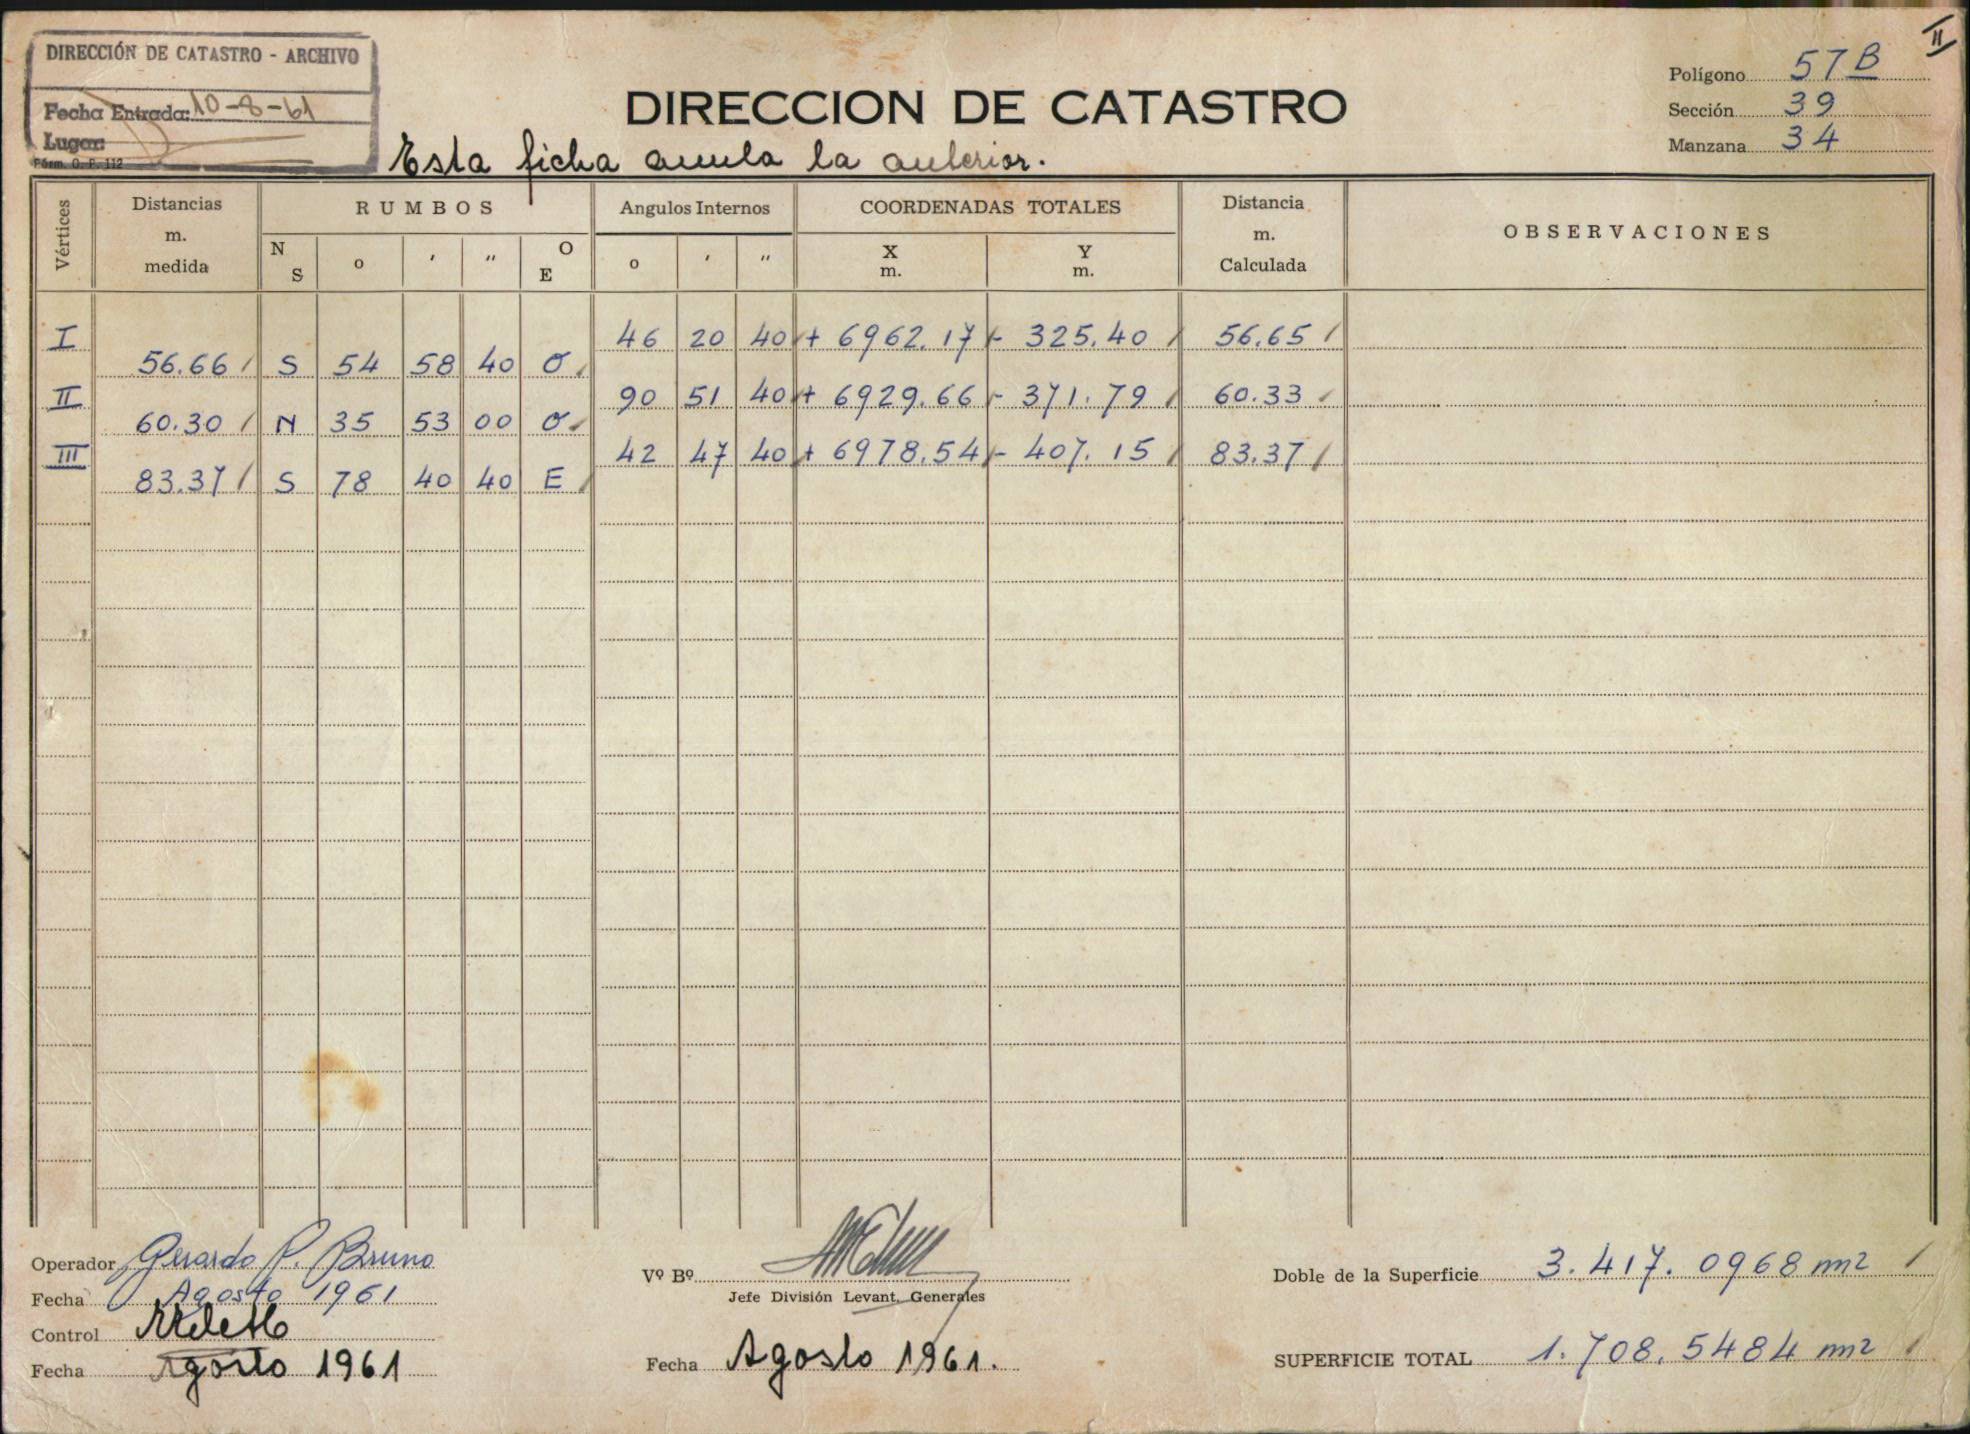 II
DIRECCIÓN DE CATASTRO - ARCHIVO
Fecha Entrada: 10-8-61
Lugar:
Fórm. O. P. 112
DIRECCION DE CATASTRO
Esta ficha anula la anterior.
Polígono 57 B
Sección 39
Manzana 34
Vértices Distancias m. medida RUMBOS Angulos Internos COORDENADAS TOTALES Distancia m. Calculada OBSERVACIONES
N S o ′ ″ O E o ′ ″ X m. Y m.
I 46 20 40 + 6962.17 - 325.40 56.65
56.66 S 54 58 40 O
II 90 51 40 + 6929.66 - 371.79 60.33
60.30 N 35 53 00 O
III 42 47 40 + 6978.54 - 407.15 83.37
83.37 S 78 40 40 E
Operador Gerardo P. Bruno
Fecha Agosto 1961
Control
Fecha Agosto 1961
Vº Bº
Jefe División Levant. Generales
Fecha Agosto 1961.
Doble de la Superficie 3.417.0968 m2
SUPERFICIE TOTAL 1.708.5484 m2